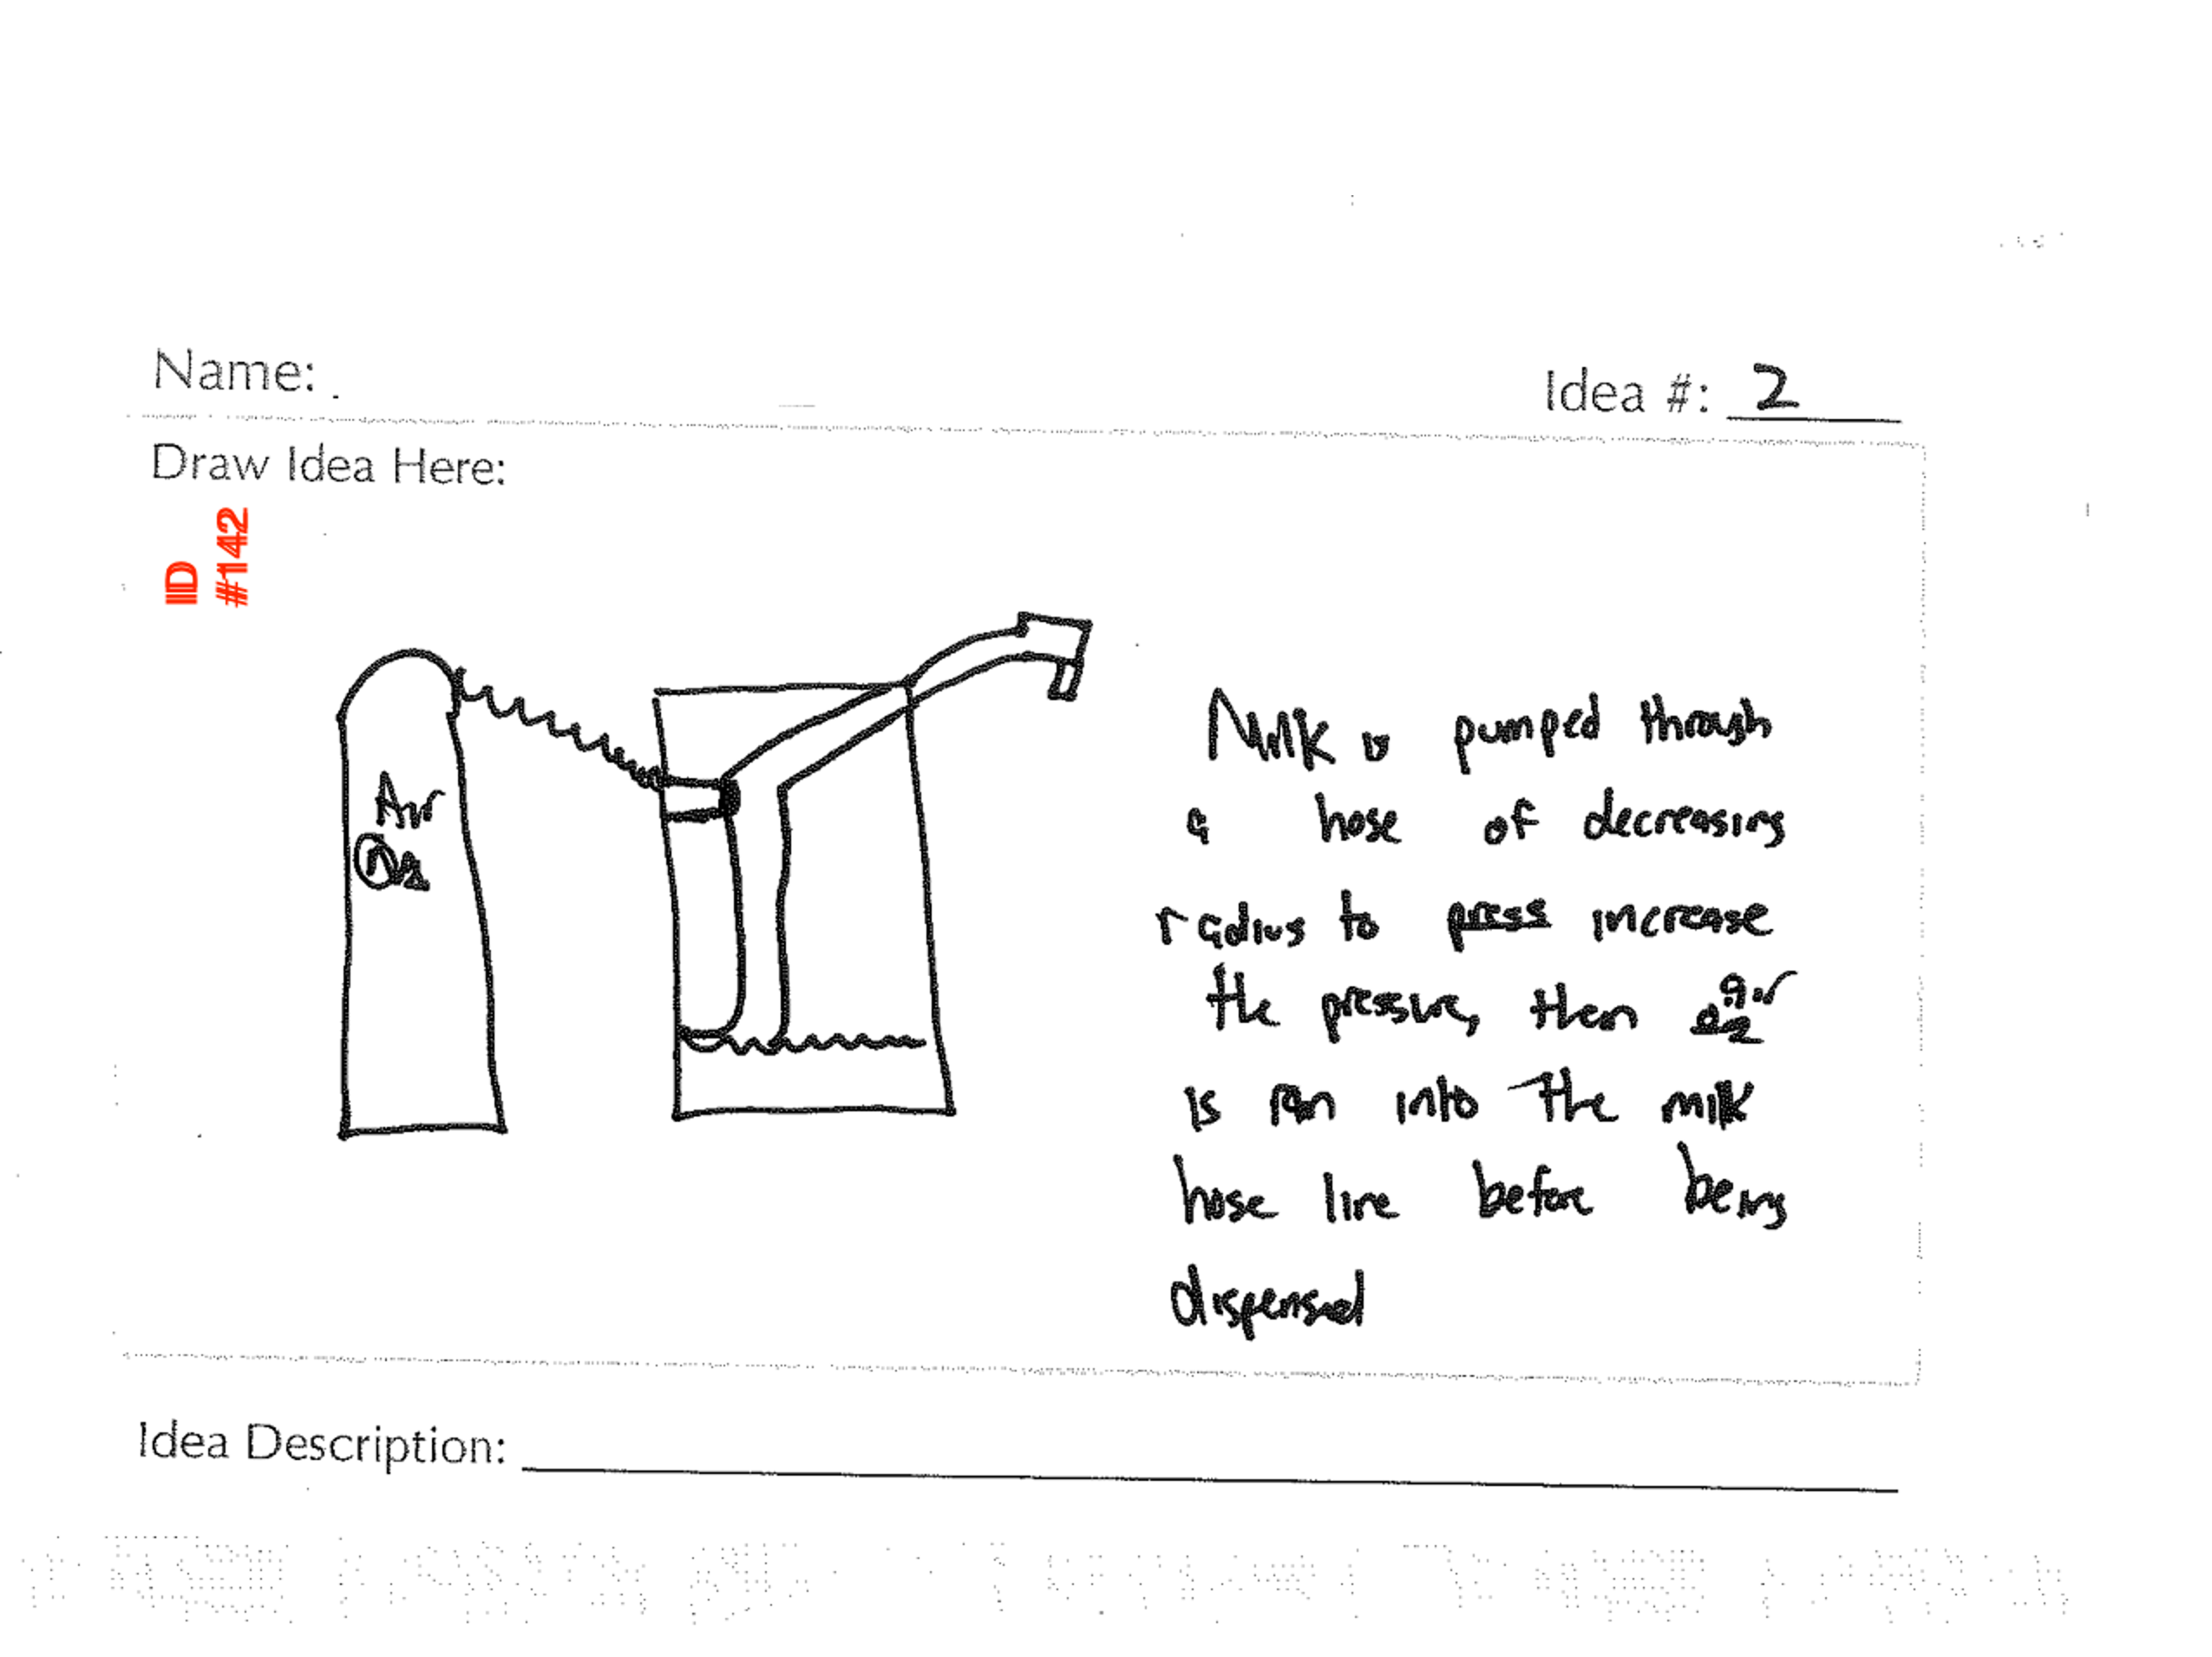 Name:
Idea #: 2
Draw Idea Here:
ID
#142
Air
Milk is pumped through
a hose of decreasing
radius to press increase
the pressure, then air
is ran into the milk
hose line before being
dispensed
Idea Description: